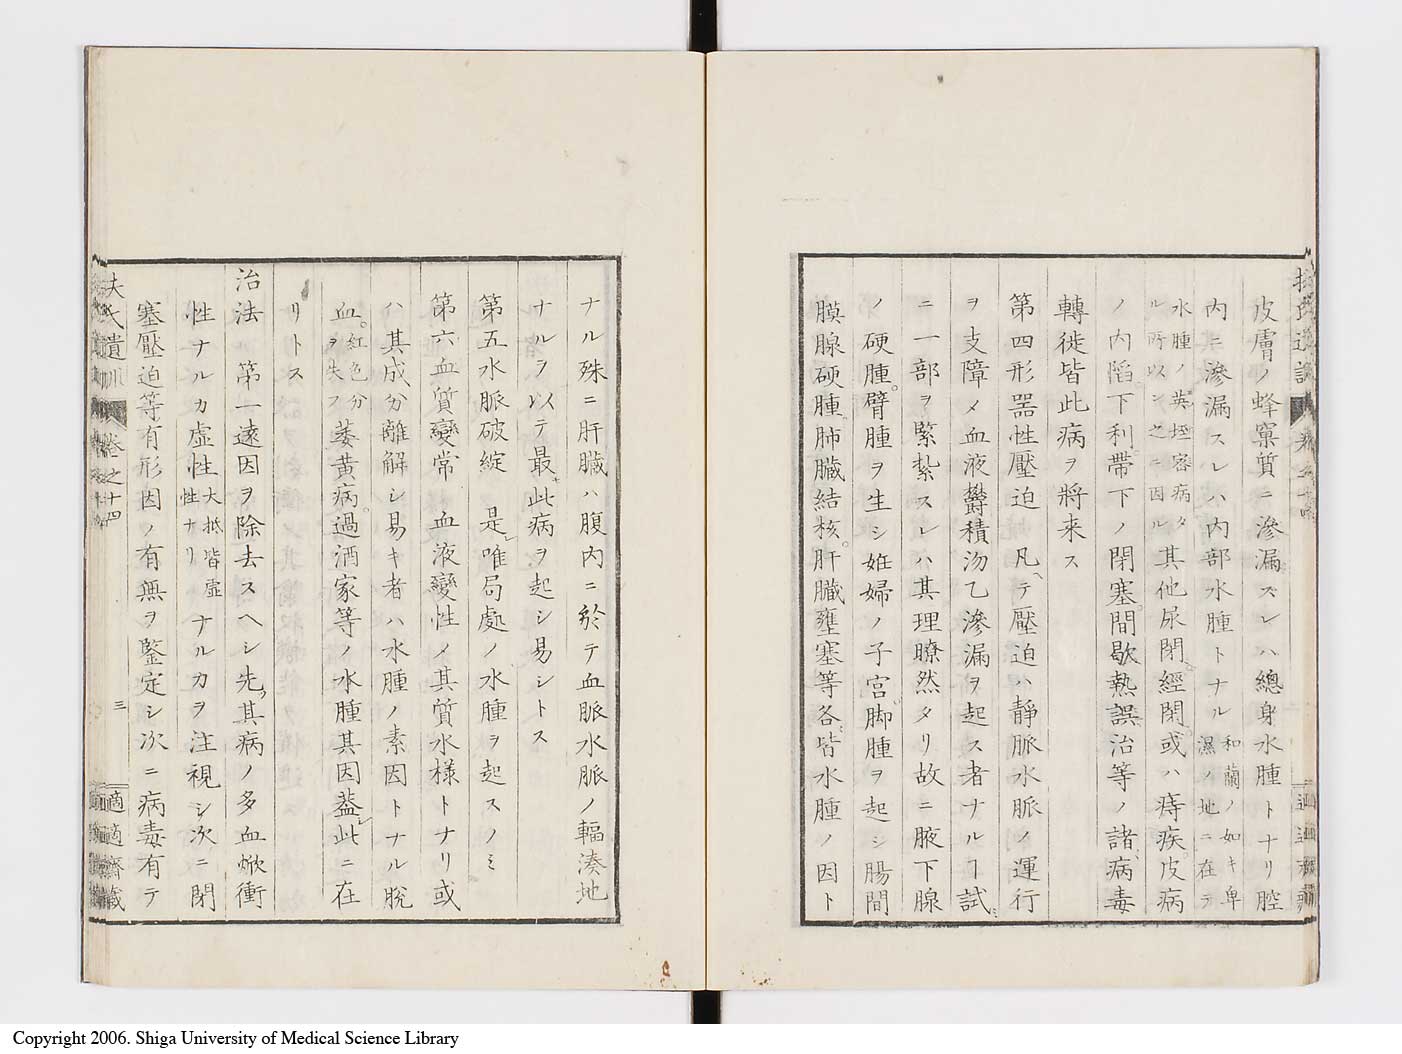 皮膚ノ蜂窠質ニ滲漏スレハ總身水腫トナリ腔
内ニ滲漏スルハ内部水腫トナル和蘭ノ如キ卑濕ノ地ニ在テ
水腫ノ英垤容病タル所以ン之ニ因ル其他尿閉。經閉。或ハ痔疾。皮病
ノ内陷。下利。帶下ノ閉塞。間歇熱誤治等ノ諸病毒
轉徙皆此病ヲ將来ス
第四形器性壓迫 凡テ壓迫ハ靜脈水脈ノ運行
ヲ支障メ血液欝積沕乙滲漏ヲ起ス者ナルヿ試
ニ一部ヲ緊紮スレハ其理瞭然タリ故ニ腋下腺
ノ硬腫。臂腫ヲ生シ姙婦ノ子宮。脚腫ヲ起シ腸間
膜腺硬腫。肺臓結核。肝臓壅塞等各。皆水腫ノ因ト
ナル殊ニ肝臓ハ腹内ニ於テ血脈水脈ノ輻湊地
ナルヲ以テ最此病ヲ起シ易シトス
第五水脈破綻 是唯局處ノ水腫ヲ起スノミ
第六血質變常 血液變性メ其質水様トナリ或
ハ其成分離解シ易キ者ハ水腫ノ素因トナル脱
血。紅色分ヲ失フ萎黄病。過酒家等ノ水腫其因葢此ニ在
リトス
治法 第一遠因ヲ除去スヘシ先其病ノ多血焮衝
性ナルカ虚性大抵皆虚性ナリナルカヲ注視シ次ニ閉
塞壓迫等有形因ノ有無ヲ鑒定シ次ニ病毒有テ
扶氏遺訓 卷之十四 三 適適齋藏